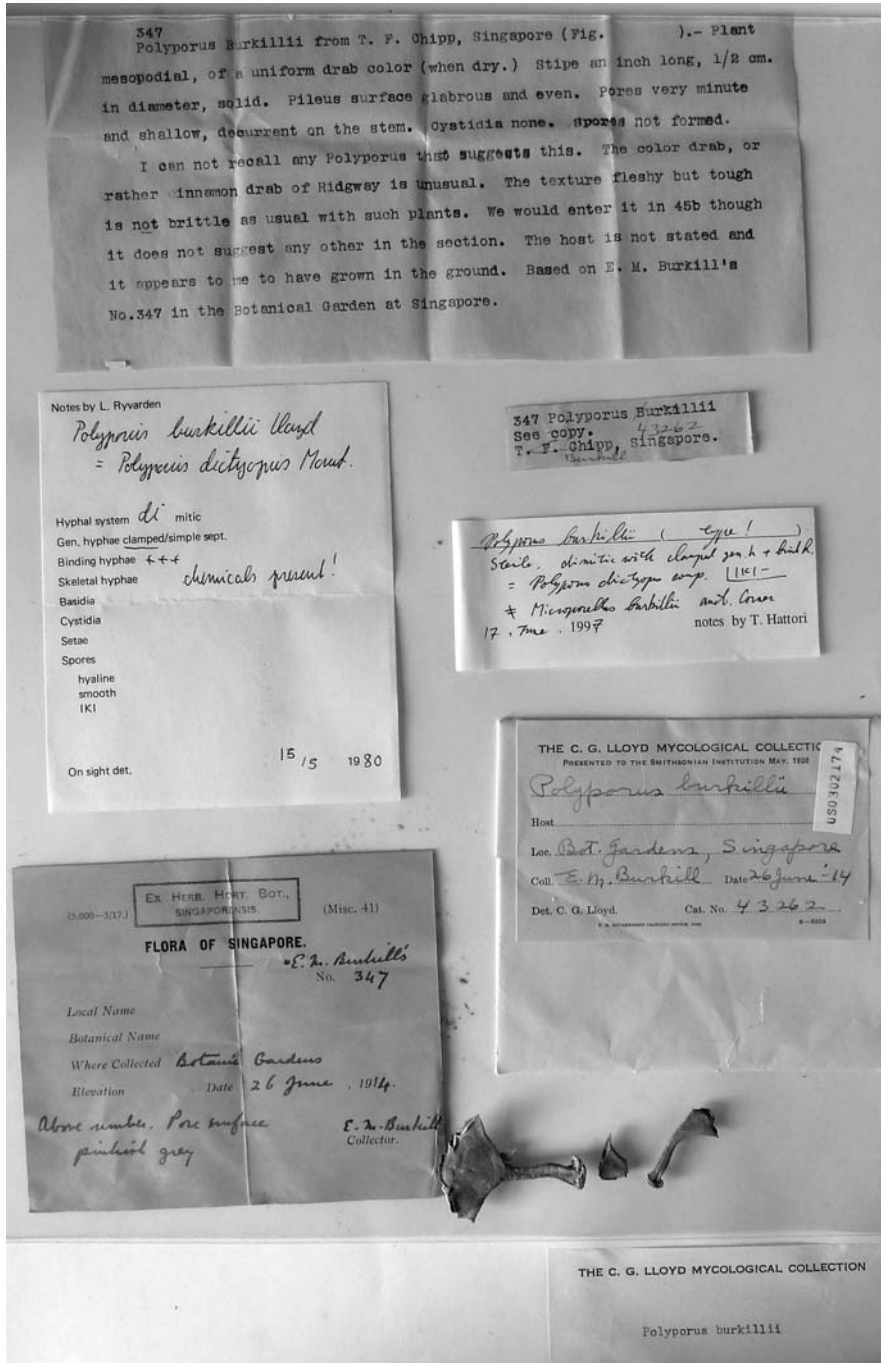 347
Polyporus Burkillii from T. F. Chipp, Singapore (Fig.       ).- Plant
mesopodial, of a uniform drab color (when dry.) Stipe an inch long, 1/2 cm.
in diameter, solid. Pileus surface glabrous and even. Pores very minute
and shallow, decurrent on the stem. Cystidia none. Spores not formed.
I can not recall any Polyporus that suggests this. The color drab, or
rather cinnamon drab of Ridgway is unusual. The texture fleshy but tough
is not brittle as usual with such plants. We would enter it in 45b though
it does not suggest any other in the section. The host is not stated and
it appears to me to have grown in the ground. Based on E. M. Burkill's
No.347 in the Botanical Garden at Singapore.
Notes by L. Ryvarden
Polyporus burkillii Lloyd
= Polyporus dictyopus Mont.
Hyphal system di mitic
Gen. hyphae clamped/simple sept.
Binding hyphae +++
Skeletal hyphae
chemicals present!
Basidia
Cystidia
Setae
Spores
hyaline
smooth
IKI
On sight det.
15/5 1980
347 Polyporus Burkillii
See copy. 43262
T. F. Chipp, Singapore.
Burkill
Polyporus burkillii ( type! )
Sterile, dimitic with clamped gen. h + bind h.
= Polyporus dictyopus comp. IKI-
≠ Microporellus burkillii auct. Corner
17. June. 1997 notes by T. Hattori
THE C. G. LLOYD MYCOLOGICAL COLLECTIO
PRESENTED TO THE SMITHSONIAN INSTITUTION MAY, 1928
US0302174
Polyporus burkillii
Host
Loc. Bot. Gardens, Singapore
Coll. E. M. Burkill Date 26 June '14
Det. C. G. Lloyd. Cat. No. 43262
EX HERB. HORT. BOT.,
SINGAPORENSIS.
(5,000—5/17.)
(Misc. 41)
FLORA OF SINGAPORE.
E. M. Burkill's
No. 347
Local Name
Botanical Name
Where Collected Botanic Gardens
Elevation Date 26 June, 1914.
Above number. Pore surface
pinkish grey
E. M. Burkill
Collector.
THE C. G. LLOYD MYCOLOGICAL COLLECTION
Polyporus burkillii